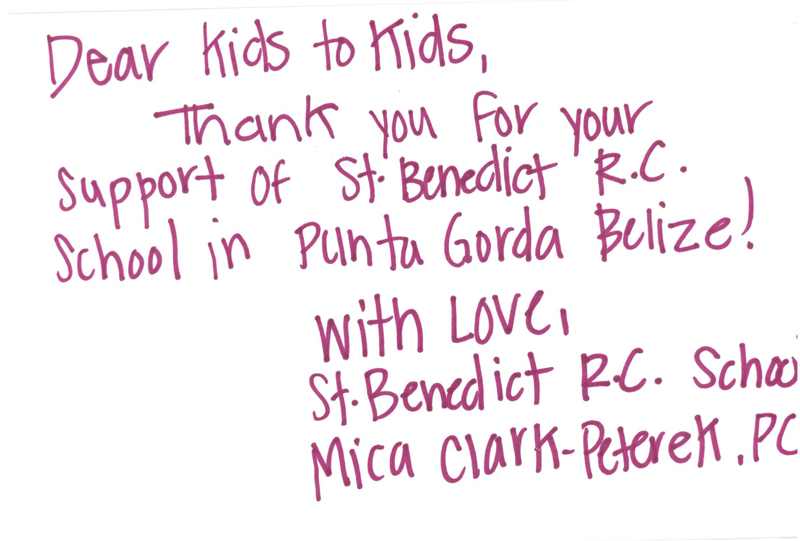 Dear Kids to Kids,
Thank you for your
Support of St. Benedict R.C.
School in Punta Gorda Belize!
With Love,
St. Benedict R.C. Schoo
Mica Clark-Peterek, PC